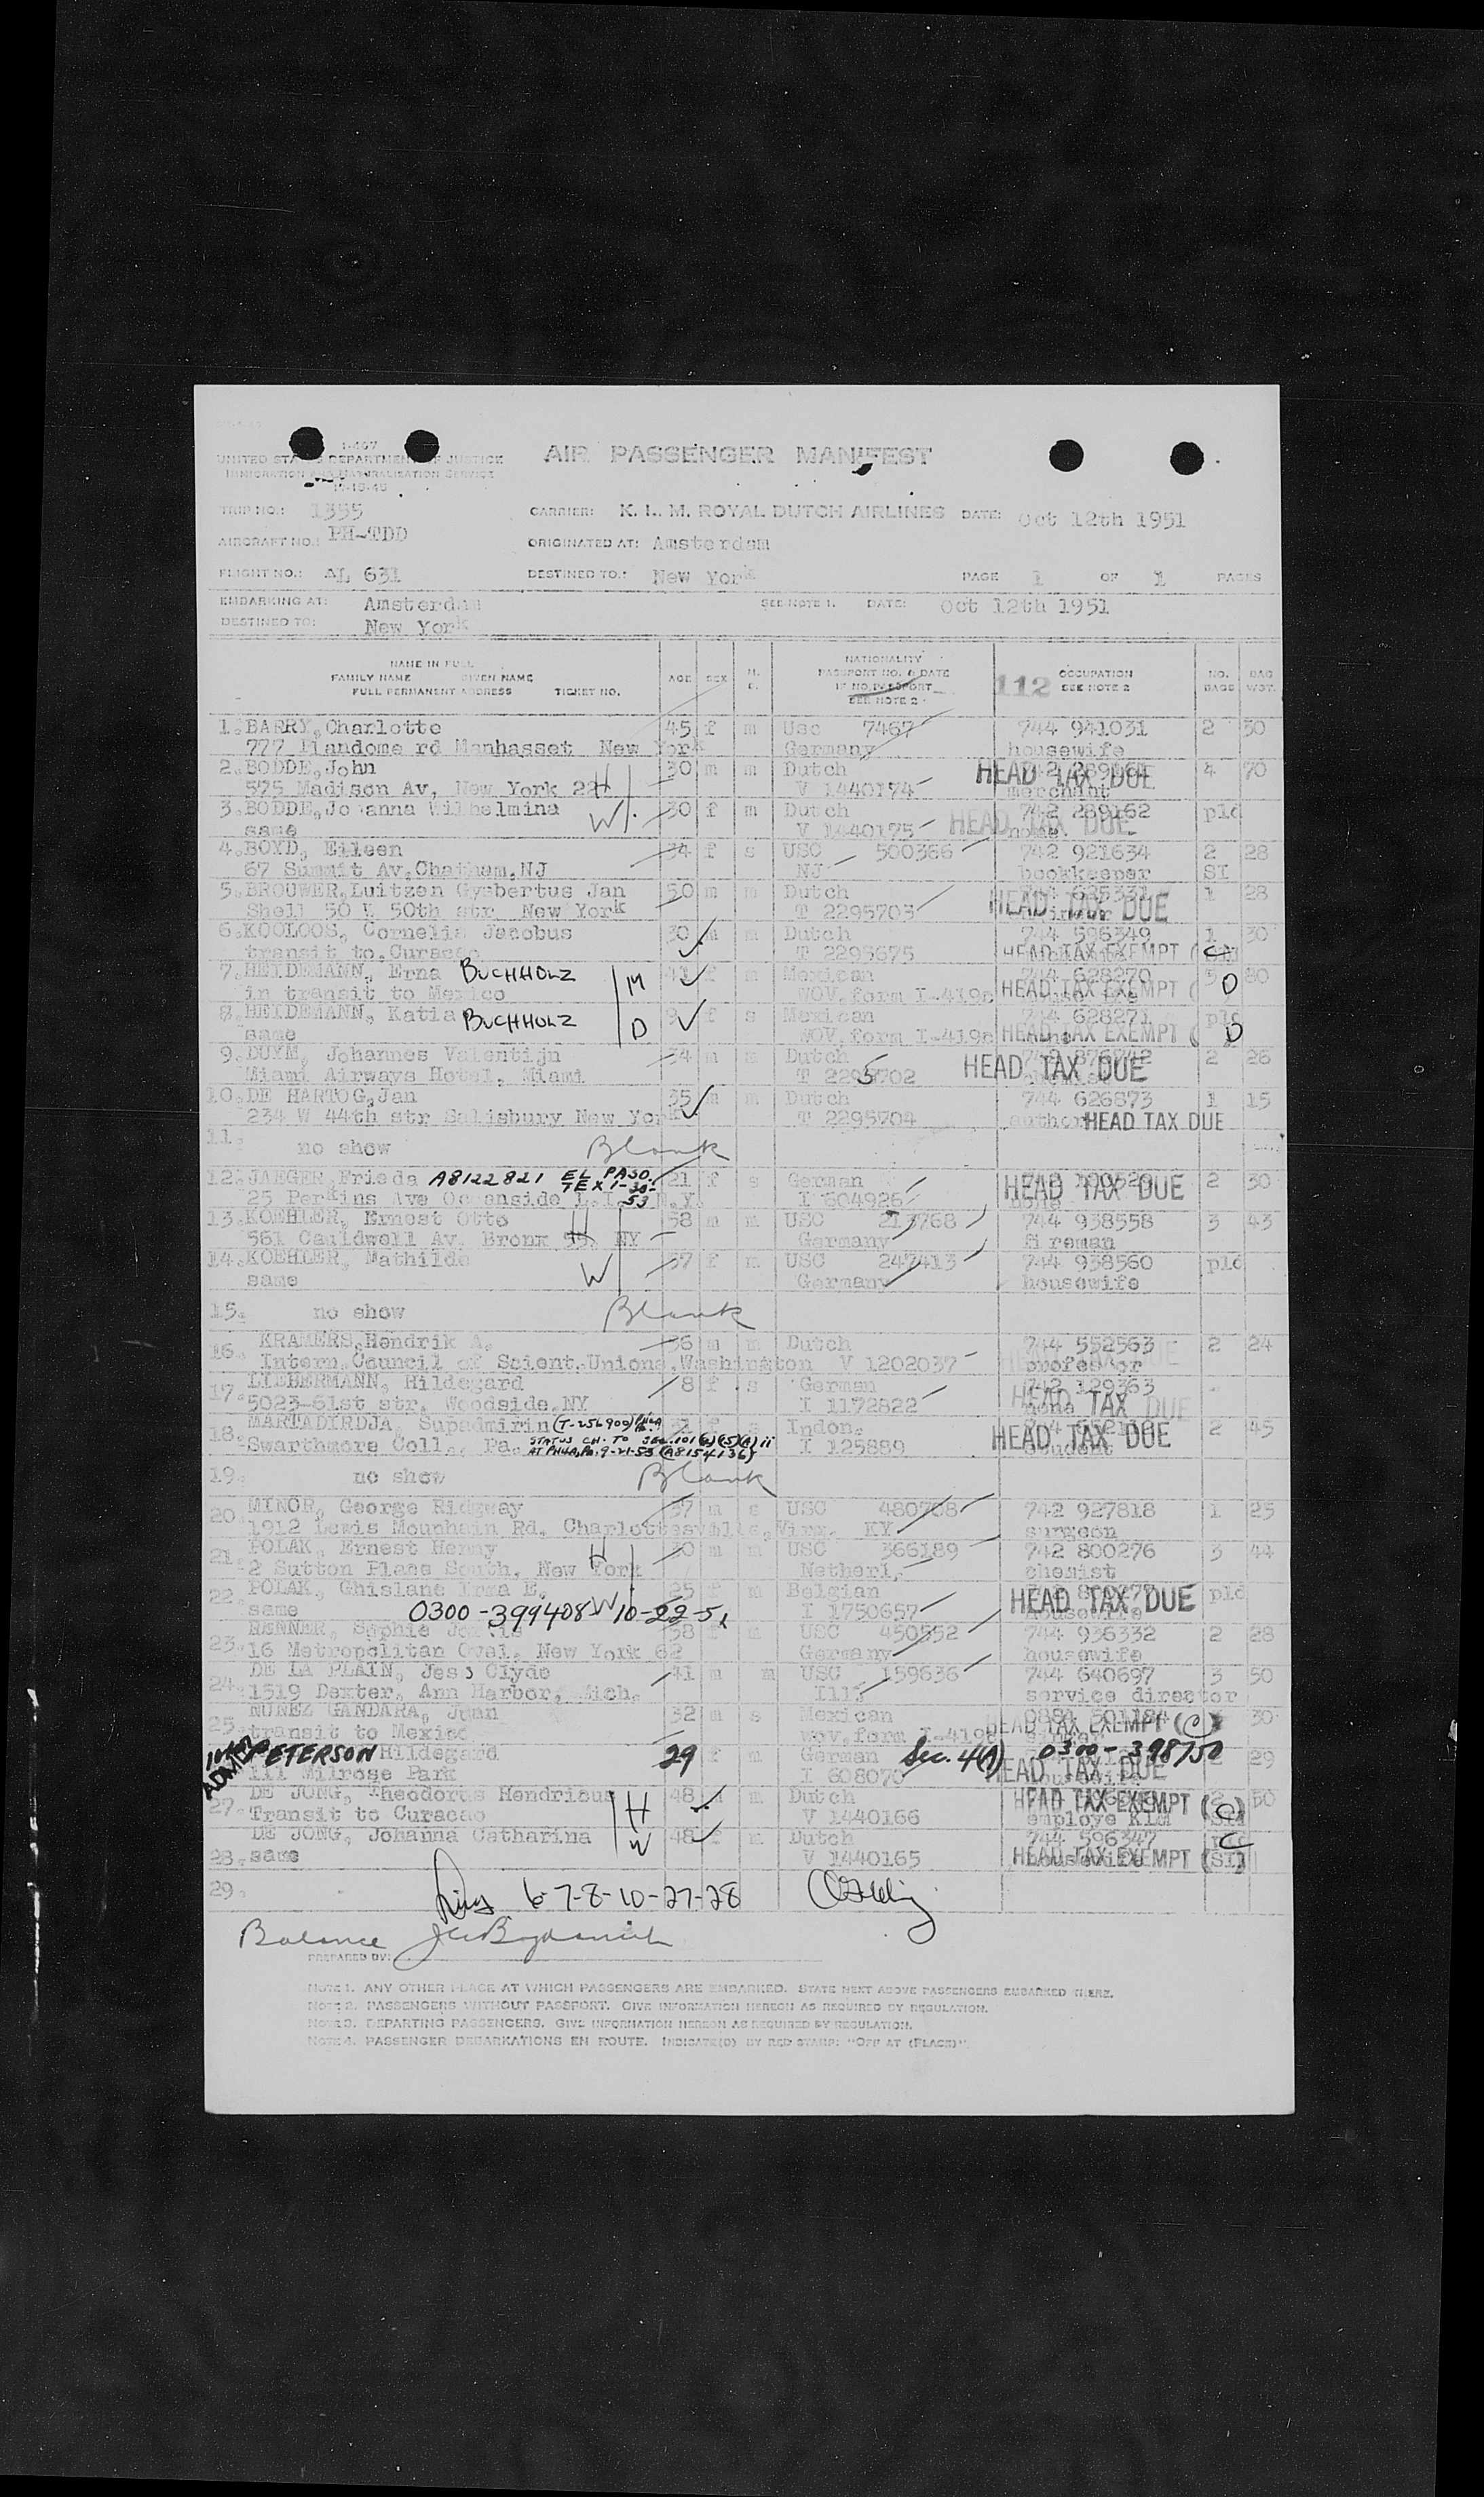 I-467
UNITED STATES DEPARTMENT OF JUSTICE
IMMIGRATION AND NATURALIZATION SERVICE
AIR PASSENGER MANIFEST
TRIP NO.: 1355
CARRIER: K. L. M. ROYAL DUTCH AIRLINES DATE: Oct 12th 1951
AIRCRAFT NO.: PH-TDD
ORIGINATED AT: Amsterdam
FLIGHT NO.: AL 631
DESTINED TO: New York PAGE 1 OF 1 PAGES
EMBARKING AT: Amsterdam SEE NOTE 1. DATE: Oct 12th 1951
DESTINED TO: New York
NAME IN FULL
FAMILY NAME GIVEN NAME
FULL PERMANENT ADDRESS TICKET NO.
AGE SEX
NATIONALITY
PASSPORT NO. & DATE
IF NO PASSPORT
SEE NOTE 2
112 OCCUPATION
SEE NOTE 2
NO. BAGS BAG WGT.
1. BARRY, Charlotte 45 f m Usc 7467 744 941031 2 50
777 Plandome rd Manhasset New York Germany housewife
2. BODDE, John 30 m m Dutch HEAD TAX DUE 4 70
575 Madison Av, New York 22 H V 1440174 merchant
3. BODDE, Johanna Wilhelmina W 30 f m Dutch 742 289162 pld
same V 1440175 HEAD TAX DUE none
4. BOYD, Eileen 34 f s USC 500366 742 921634 2 28
67 Summit Av, Chatham, NJ NJ bookkeeper SI
5. BROUWER, Luitzen Gysbertus Jan 50 m m Dutch HEAD TAX DUE 1 28
Shell 50 W 50th str New York T 2295703
6. KOOLOOS, Cornelis Jacobus 30 m m Dutch 744 596349 1 30
transit to Curacao T 2295675 HEAD TAX EXEMPT (C)
7. HEIDEMANN, Erna BUCHHOLZ M 41 f m Mexican 744 628270 5 80
in transit to Mexico WOV, form I-419a HEAD TAX EXEMPT ( D
8. HEIDEMANN, Katia BUCHHOLZ D f s Mexican 744 628271 pld
same WOV, form I-419a HEAD TAX EXEMPT ( D
9. DUYM, Johannes Valentijn 34 m Dutch HEAD TAX DUE 2 26
Miami Airways Hotel, Miami T 2295702
10. DE HARTOG, Jan 35 m m Dutch 744 626873 1 15
234 W 44th str Salisbury New York T 2295704 author HEAD TAX DUE
11. no show Blank
12. JAEGER, Frieda A8122821 EL PASO TEX 1-30-53 21 f s German HEAD TAX DUE 2 30
25 Perkins Ave Oceanside L.I. N.Y. I 604926 none
13. KOEHLER, Ernest Otto H 58 m m USC 213768 744 938558 3 43
561 Cauldwell Av. Bronx 55, NY Germany fireman
14. KOEHLER, Mathilde W 57 f m USC 247413 744 938560 pld
same Germany housewife
15. no show Blank
16. KRAMERS, Hendrik A. 56 m m Dutch 744 552563 2 24
Intern. Council of Scient. Unions, Washington V 1202037 professor
17. LIEBERMANN, Hildegard 8 f s German 742 129363
5023-61st str. Woodside, NY I 1172822 none HEAD TAX DUE
18. MARTADIRDJA, Supadmirin (T-256900) PHILA s Indon. HEAD TAX DUE 2 45
Swarthmore Coll., Pa. STATUS CH. TO SEC. 101 (a)(15)(A) ii I 125889 student
AT PHILA, Pa. 9-21-53 (A8154136)
19. no show Blank
20. MINOR, George Ridgway 37 m s USC 480708 742 927818 1 25
1912 Lewis Mountain Rd, Charlottesville, Virg. KY surgeon
21. POLAK, Ernest Henny H 30 m m USC 366189 742 800276 3 44
2 Sutton Place South, New York Netherl. chemist
22. POLAK, Ghislane Irma E. 25 f m Belgian HEAD TAX DUE pld
same 0300-399408 W 10-22-51 I 1750657 housewife
23. RENNER, Sophie 58 f m USC 450552 744 936332 2 28
16 Metropolitan Oval, New York 62 Germany housewife
24. DE LA PLAIN, Jess Clyde 41 m m USC 159636 744 640697 3 50
1519 Dexter, Ann Harbor, Mich. Ill. service director
25. NUNEZ GANDARA, Juan 32 m s Mexican HEAD TAX EXEMPT (C) 30
transit to Mexico wov, form I-419a
ADMIT PETERSON Hildegard 29 f m German Sec. 4(A) 0300-398750 29
111 Milrose Park I 608070 HEAD TAX DUE
27. DE JONG, Theodorus Hendricus H 48 m Dutch HEAD TAX EXEMPT (C) 50
Transit to Curacao V 1440166 employe KLM
28. DE JONG, Johanna Catharina W 48 f m Dutch 744 596347 C
same V 1440165 HEAD TAX EXEMPT (SI)
29.
6-7-8-10-27-28
Balance
PREPARED BY:
NOTE 1. ANY OTHER PLACE AT WHICH PASSENGERS ARE EMBARKED. STATE NEXT ABOVE PASSENGERS EMBARKED THERE.
NOTE 2. PASSENGERS WITHOUT PASSPORT. GIVE INFORMATION HEREON AS REQUIRED BY REGULATION.
NOTE 3. DEPARTING PASSENGERS. GIVE INFORMATION HEREON AS REQUIRED BY REGULATION.
NOTE 4. PASSENGER DEBARKATIONS EN ROUTE. INDICATE(D) BY RED STAMP: "OFF AT (PLACE)".